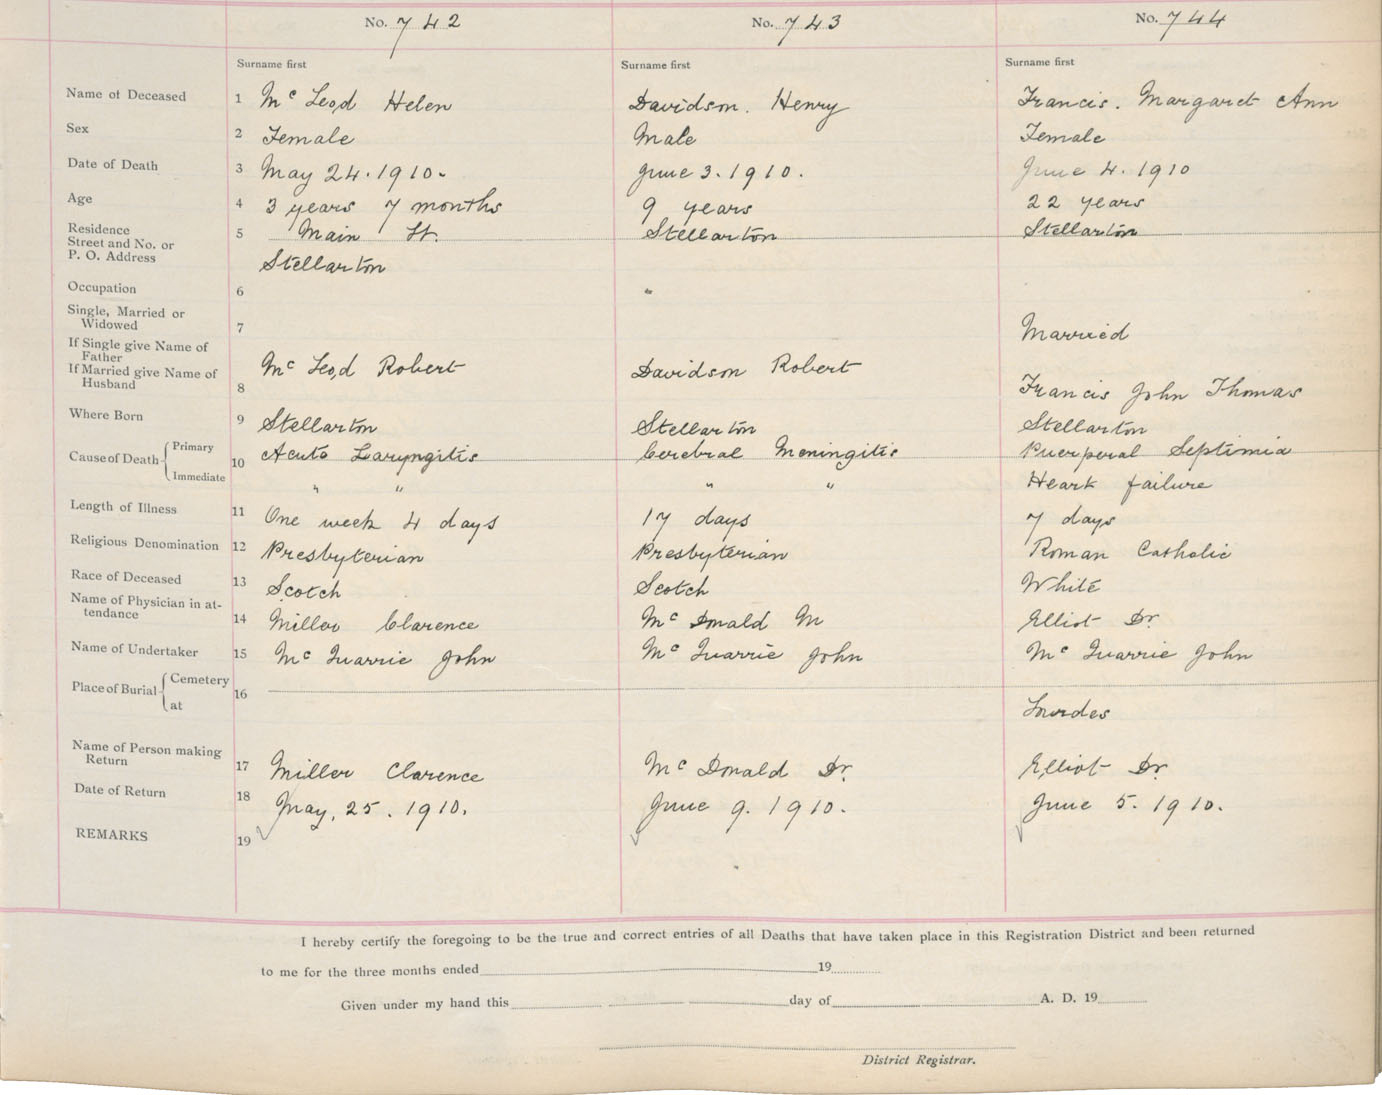 No. 742 No. 743 No. 744
Surname first Surname first Surname first
Name of Deceased 1 Mc Leod Helen Davidson. Henry Francis. Margaret Ann
Sex 2 Female Male Female
Date of Death 3 May 24. 1910. June 3. 1910. June 4. 1910
Age 4 3 years 7 months 9 years 22 years
Residence 5 Main St. Stellarton Stellarton
Street and No. or
P. O. Address Stellarton
Occupation 6 "
Single, Married or
Widowed 7 Married
If Single give Name of
Father Mc Leod Robert Davidson Robert
If Married give Name of
Husband 8 Francis John Thomas
Where Born 9 Stellarton Stellarton Stellarton
Cause of Death Primary 10 Acute Laryngitis Cerebral Meningitis Puerperal Septimia
Immediate " " " " Heart failure
Length of Illness 11 One week 4 days 17 days 7 days
Religious Denomination 12 Presbyterian Presbyterian Roman Catholic
Race of Deceased 13 Scotch Scotch White
Name of Physician in at-
tendance 14 Miller Clarence Mc Donald M Elliot Dr.
Name of Undertaker 15 Mc Quarrie John Mc Quarrie John Mc Quarrie John
Place of Burial Cemetery 16
at Lourdes
Name of Person making
Return 17 Miller Clarence Mc Donald Dr. Elliot Dr.
Date of Return 18 May, 25. 1910. June 9. 1910. June 5. 1910.
REMARKS 19
I hereby certify the foregoing to be the true and correct entries of all Deaths that have taken place in this Registration District and been returned
to me for the three months ended 19
Given under my hand this day of A. D. 19
District Registrar.